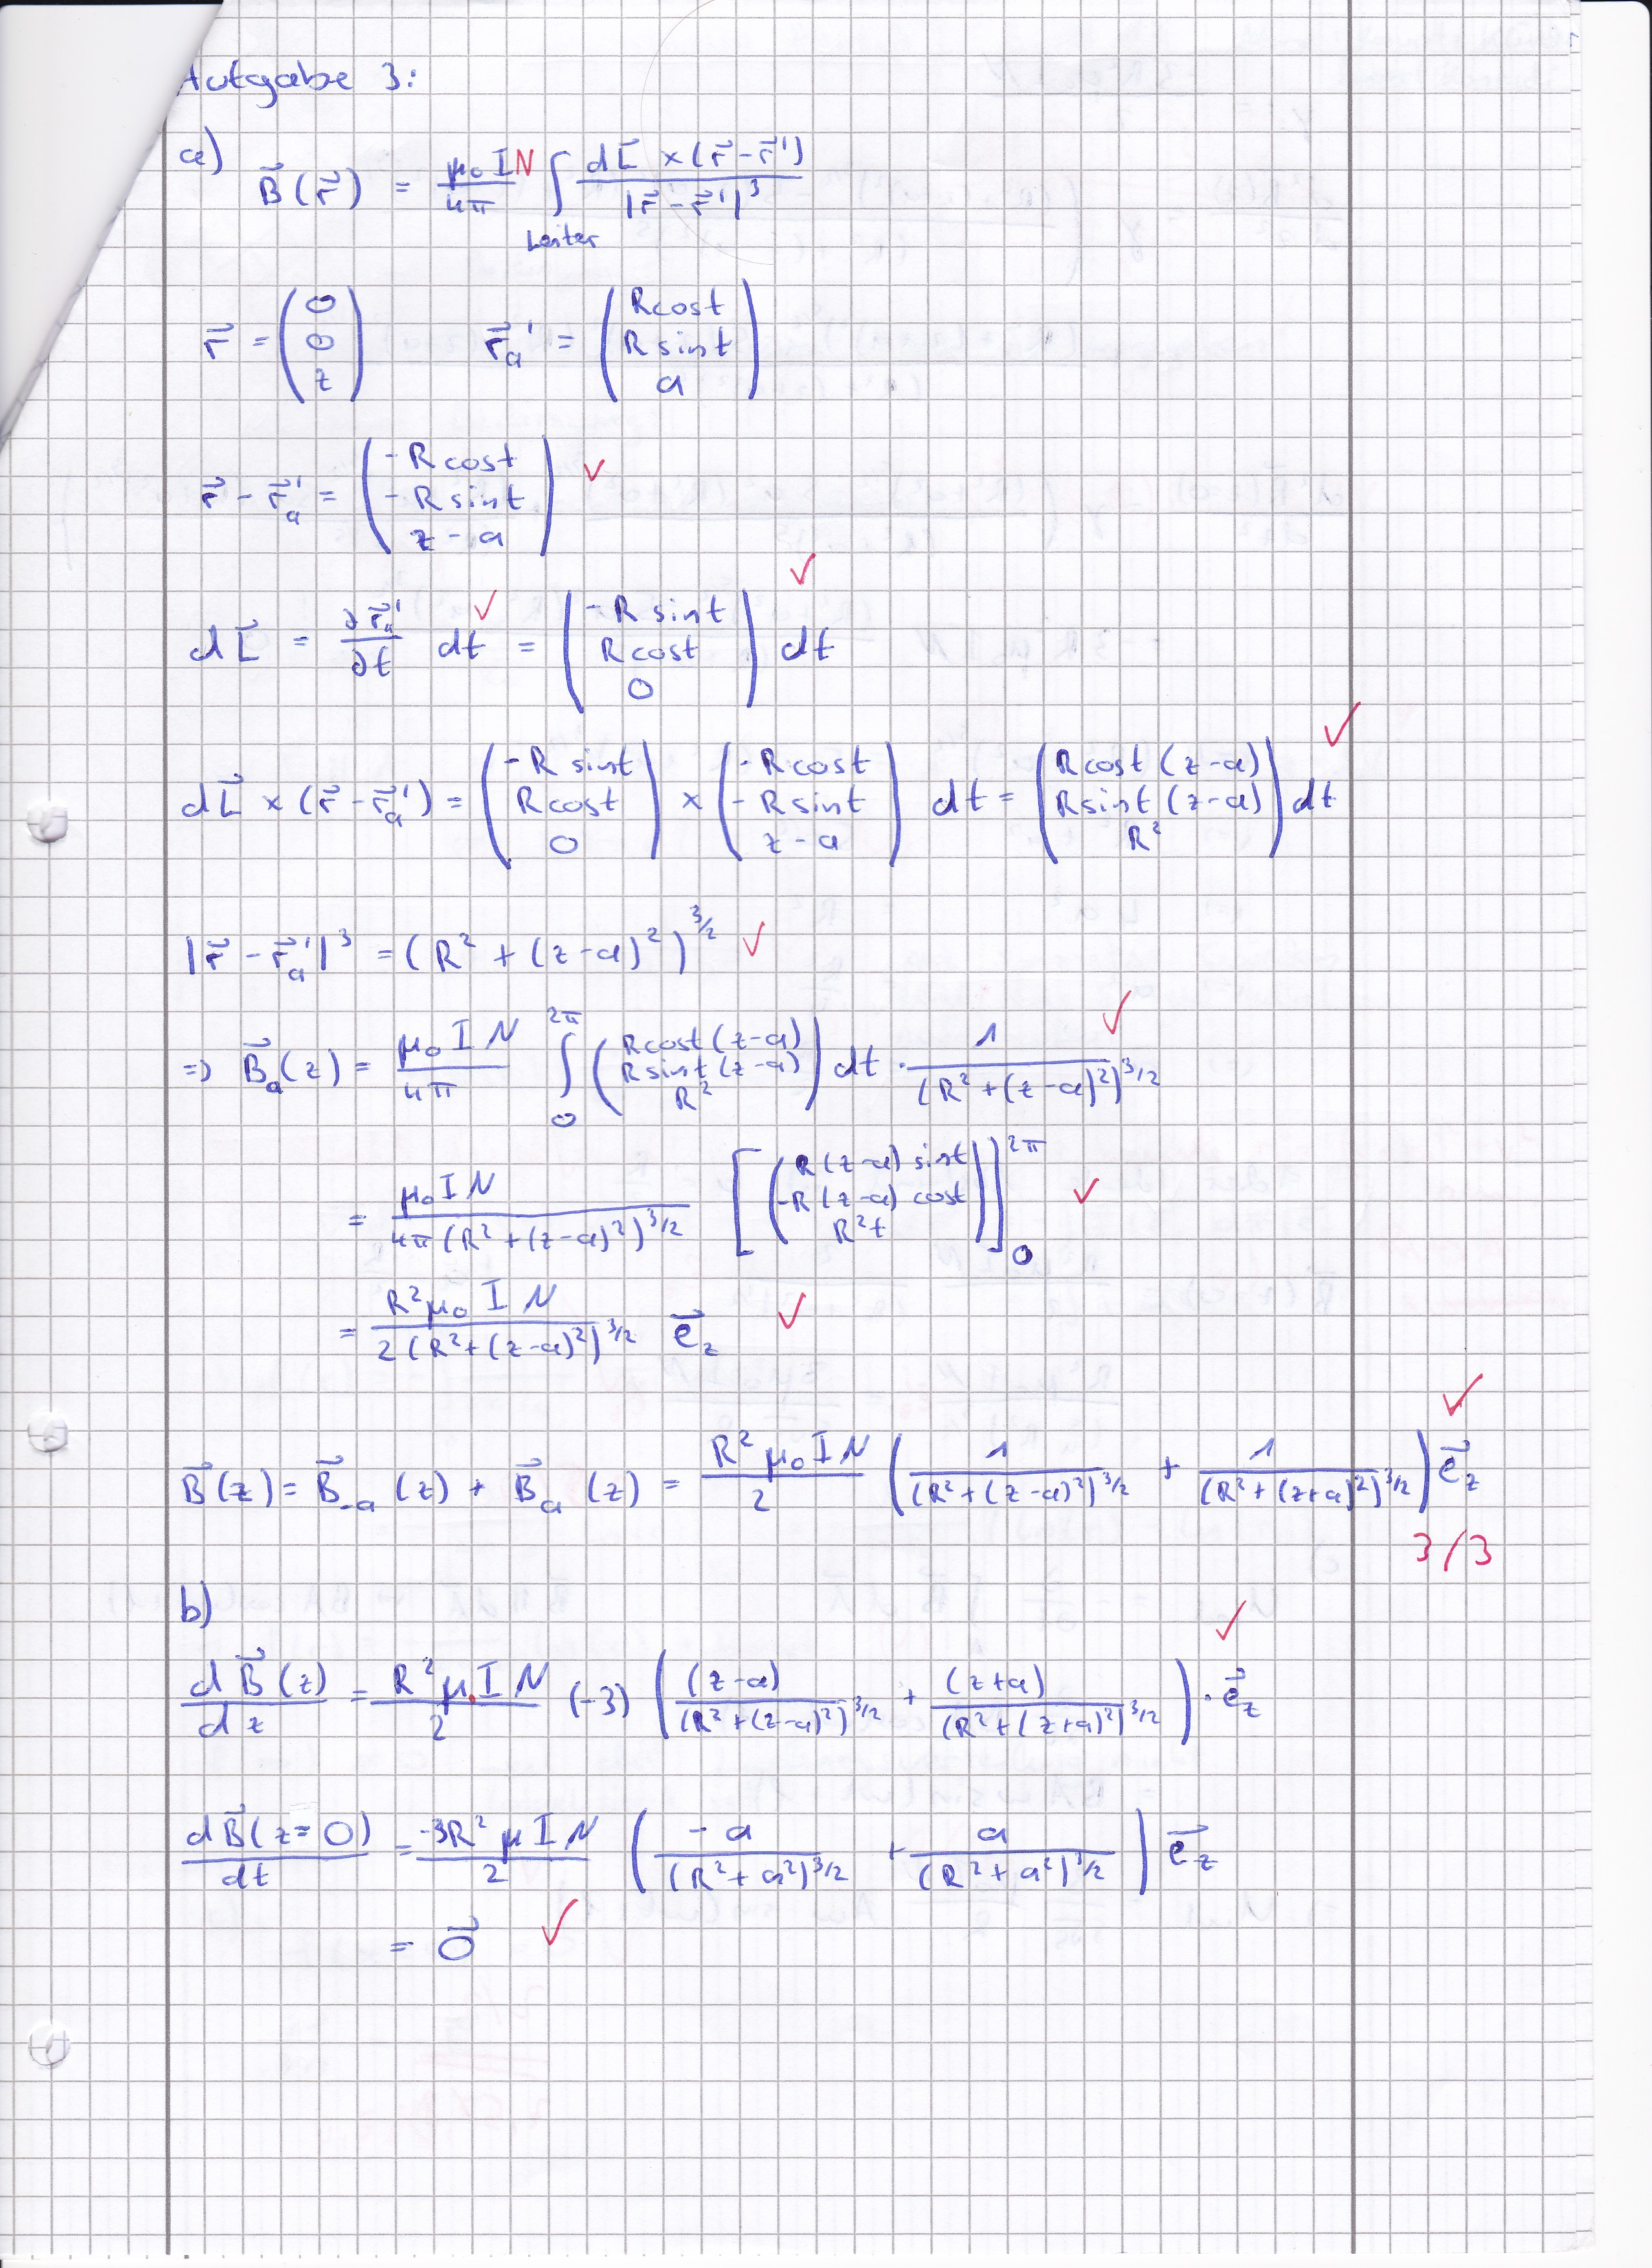 Aufgabe 3:
a) B⃗(r⃗) = μ₀IN/4π ∫_Leiter dL⃗ × (r⃗ - r⃗')/|r⃗ - r⃗'|³
r⃗ = (0, 0, z) r⃗ₐ' = (R cos t, R sin t, a)
r⃗ - r⃗ₐ' = (-R cos t, -R sin t, z - a) ✓
dL⃗ = ∂r⃗ₐ'/∂t dt ✓ = (-R sin t, R cos t, 0) dt ✓
dL⃗ × (r⃗ - r⃗ₐ') = (-R sin t, R cos t, 0) × (-R cos t, -R sin t, z - a) dt = (R cos t (z-a), R sin t (z-a), R²) dt ✓
|r⃗ - r⃗ₐ'|³ = (R² + (z-a)²)^3/2 ✓
=> B⃗ₐ(z) = μ₀IN/4π ∫₀^2π (R cos t (z-a), R sin t (z-a), R²) dt · 1/(R² + (z-a)²)^3/2 ✓
= μ₀IN/4π(R² + (z-a)²)^3/2 [(R(z-a) sin t, -R(z-a) cos t, R²t)]₀^2π ✓
= R²μ₀IN/2(R² + (z-a)²)^3/2 e⃗_z ✓
B⃗(z) = B⃗₋ₐ(z) + B⃗ₐ(z) = R²μ₀IN/2 (1/(R² + (z-a)²)^3/2 + 1/(R² + (z+a)²)^3/2) e⃗_z ✓
3/3
b)
dB⃗(z)/dz = R²μ₀IN/2 (-3) ((z-a)/(R² + (z-a)²)^3/2 + (z+a)/(R² + (z+a)²)^3/2) · e⃗_z ✓
dB⃗(z=0)/dt = -3R²μIN/2 (-a/(R² + a²)^3/2 + a/(R² + a²)^3/2) e⃗_z
= 0⃗ ✓